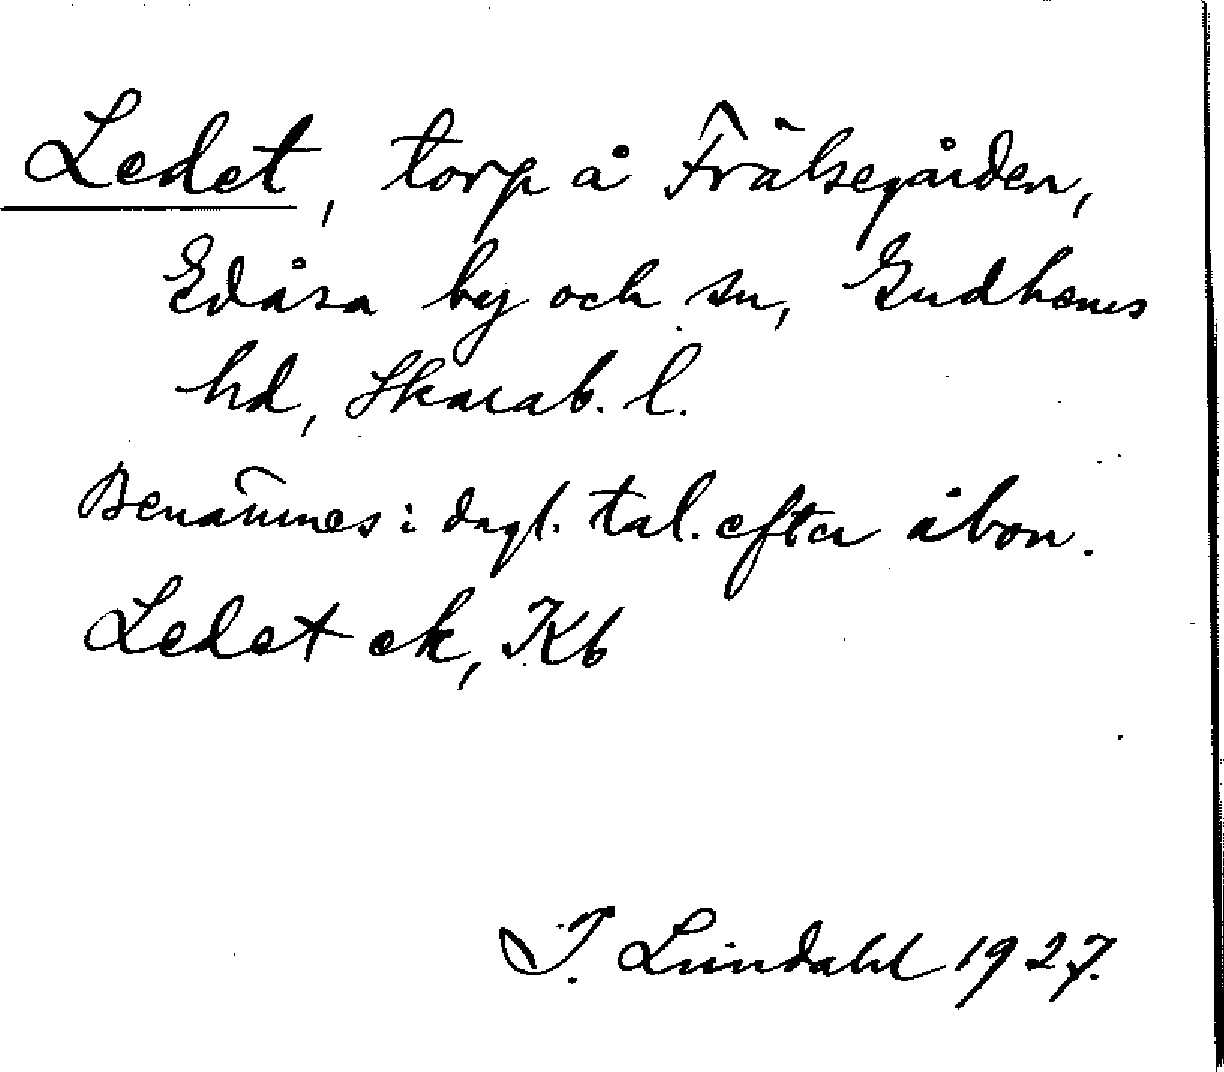 Ledet, torp å Frälsegården,
Edåsa by och sn, Gudhems
hd, Skarab. l.
Benämnes i dagl. tal. efter åbon.
Ledet ek, JKb
I. Lundahl 1927.